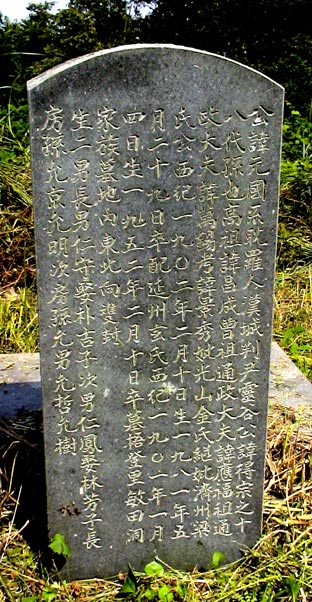 公諱元國系耽羅人漢城判尹靈谷公諱得宗之十
八代孫也高祖諱昌成曾祖通政大夫諱應福祖通
政大夫諱萬錫考諱景秀妣光山金氏繼妣濟州梁
氏公西紀一九〇二年二月十日生一九八一年五
月二十九日卒配延州玄氏西紀一九〇一年一月
四日生一九五二年二月十日卒墓梧登里敏田洞
家族墓地內東北向雙封
生二男長男仁守娶朴吉子次男仁鳳娶林芳子長
房孫允京允明次房孫允男允哲允樹